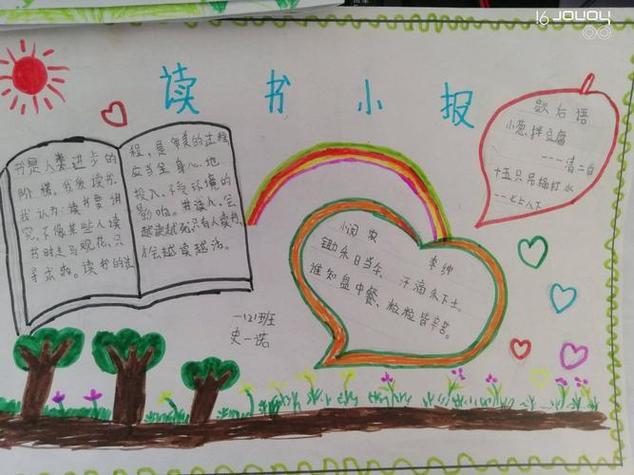 读书小报
书是人类进步的
阶梯,我爱读书,
我认为:读书要讲
究,不像某些人读
书时走马观花,只
寻求热。读书的过
程,是享受的过程
应当全身心地
投入,不受环境的
影响。
越读越活。
歇后语
小葱拌豆腐
----清二白
十五只吊桶打水
---七上八下
悯农
李绅
锄禾日当午,汗滴禾下土。
谁知盘中餐,粒粒皆辛苦。
一121班
史一诺